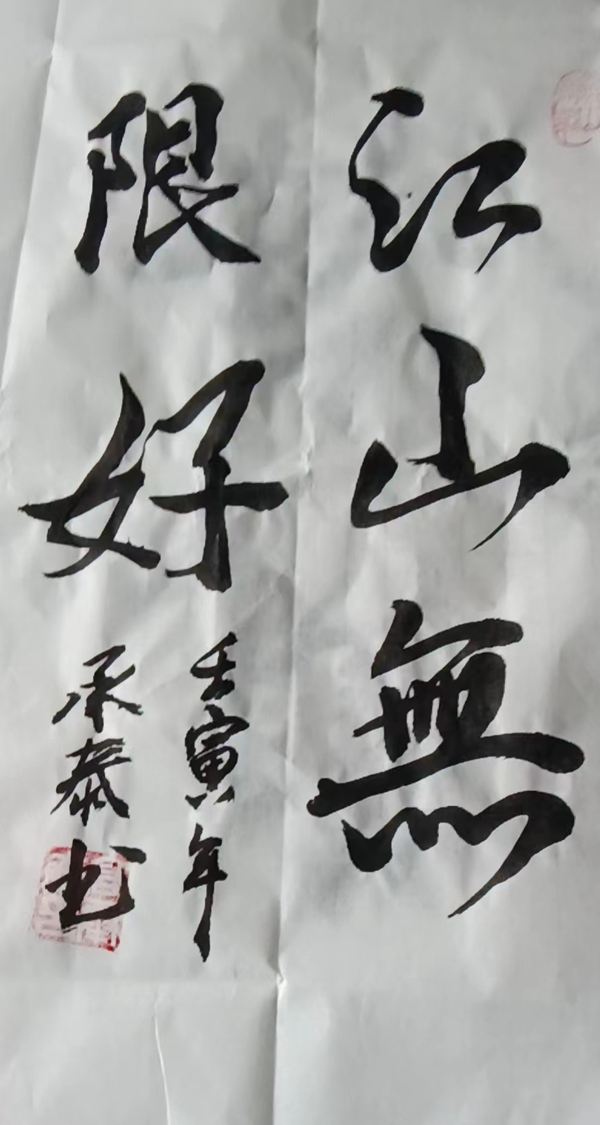 江山無
限好
壬寅年
承泰书